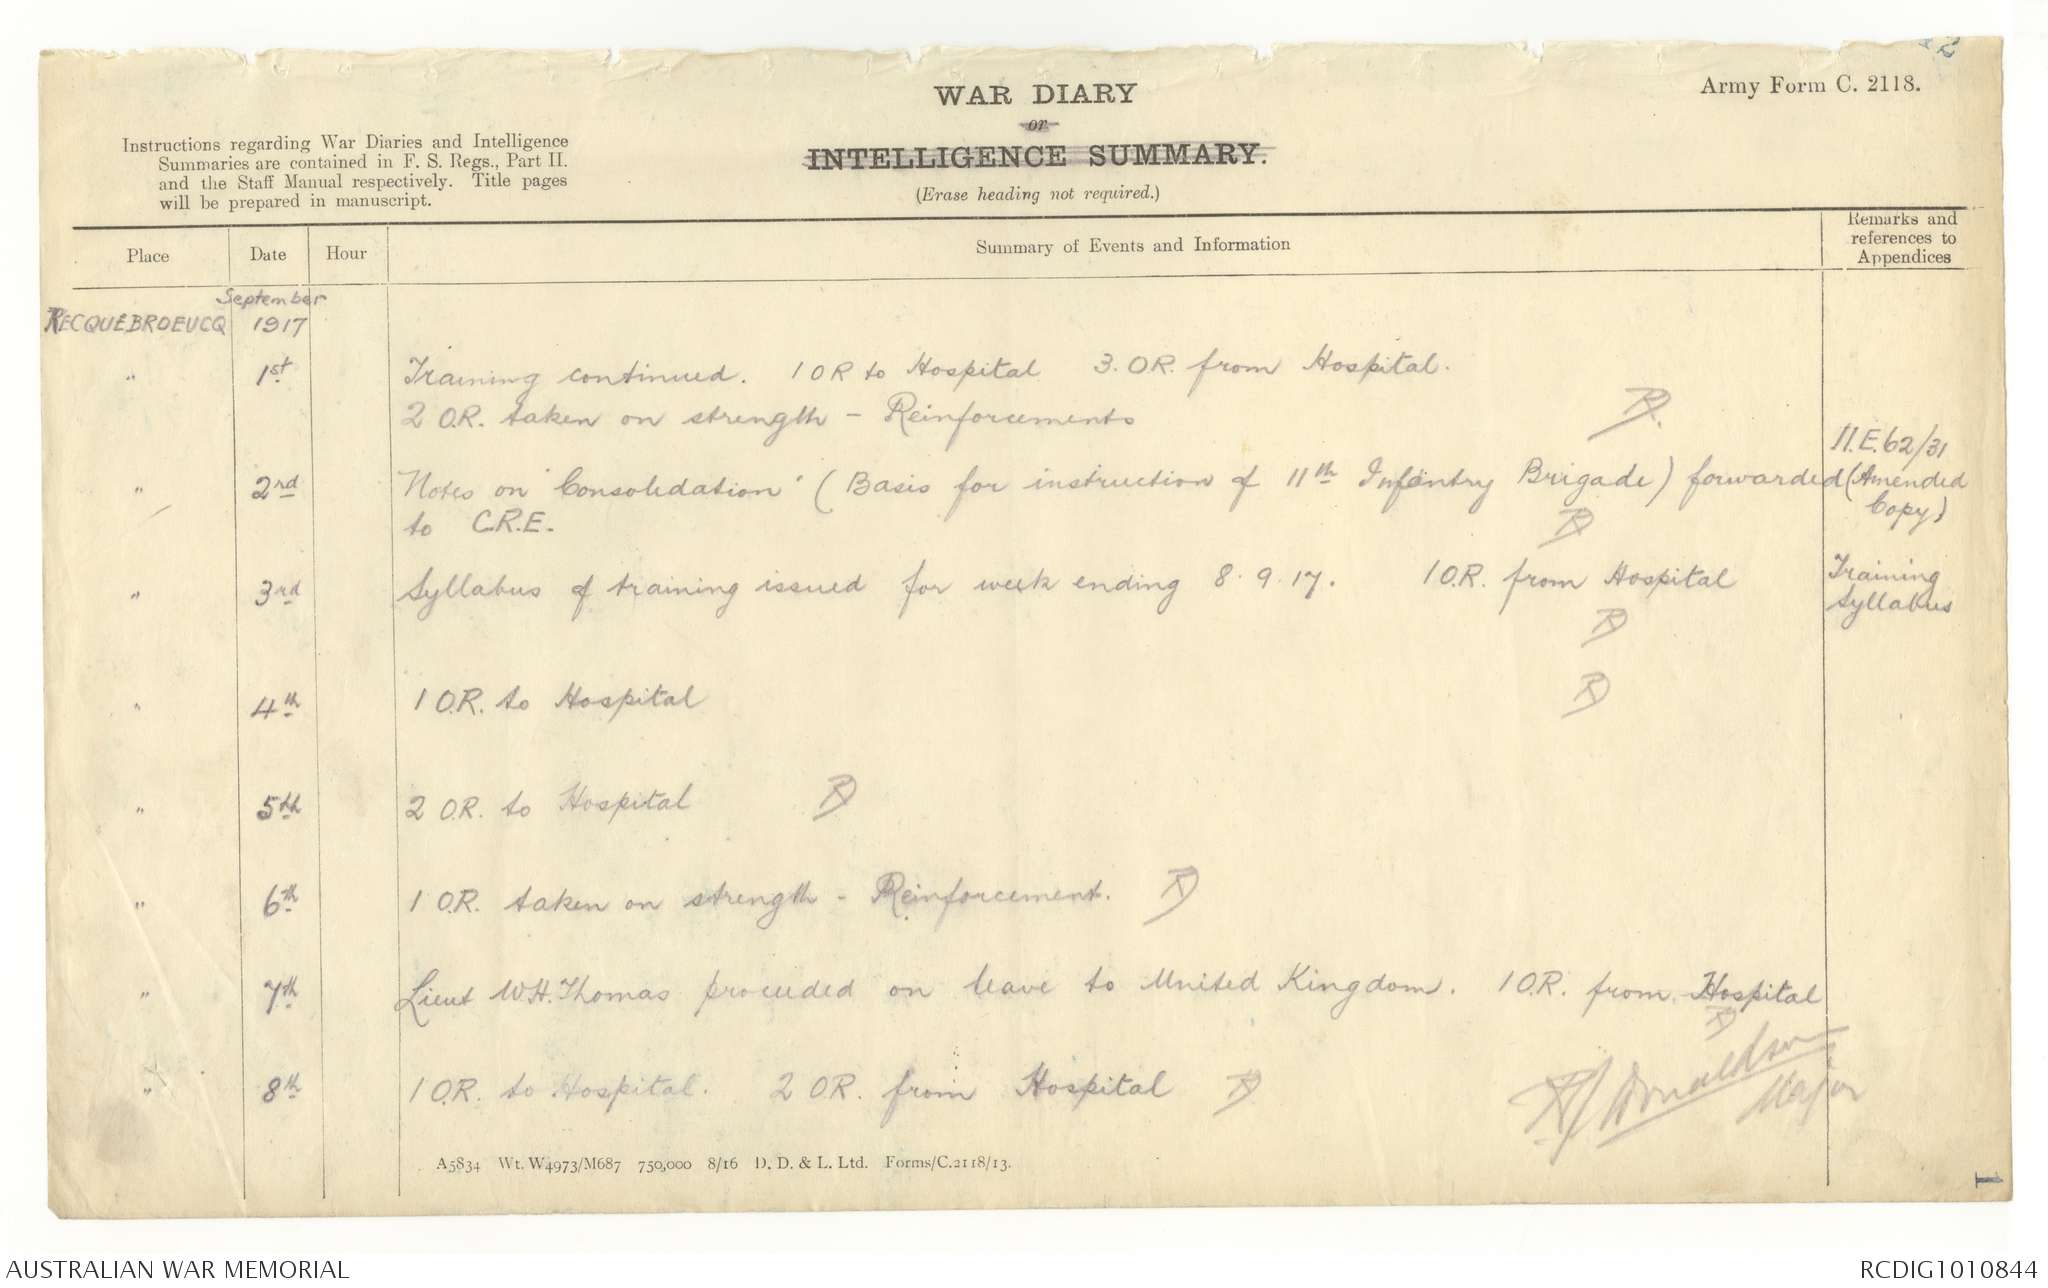 Army Form C. 2118.
WAR DIARY
or
INTELLIGENCE SUMMARY.
(Erase heading not required.)
Instructions regarding War Diaries and Intelligence
Summaries are contained in F. S. Regs., Part II.
and the Staff Manual respectively. Title pages
will be prepared in manuscript.
Place Date Hour Summary of Events and Information Remarks and references to Appendices
September
RECQUEBROEUCQ 1917
" 1st Training continued. 1 OR to Hospital 3. O.R. from Hospital.
2 O.R. taken on strength - Reinforcements
" 2nd Notes on 'Consolidation' (Basis for instruction of 11th Infantry Brigade) forwarded
to C.R.E.
11.E.62/31
(Amended
Copy)
" 3rd Syllabus of training issued for week ending 8.9.17. 1 O.R. from Hospital
Training
Syllabus
" 4th 1 O.R. to Hospital
" 5th 2 O.R. to Hospital
" 6th 1 O.R. taken on strength - Reinforcement.
" 7th Lieut W.H. Thomas proceeded on leave to United Kingdom. 1 O.R. from Hospital
" 8th 1 O.R. to Hospital. 2 O.R. from Hospital
RJ Donaldson
Major
A5834 Wt. W4973/M687 750,000 8/16 D. D. & L. Ltd. Forms/C.2118/13.
1
AUSTRALIAN WAR MEMORIAL
RCDIG1010844